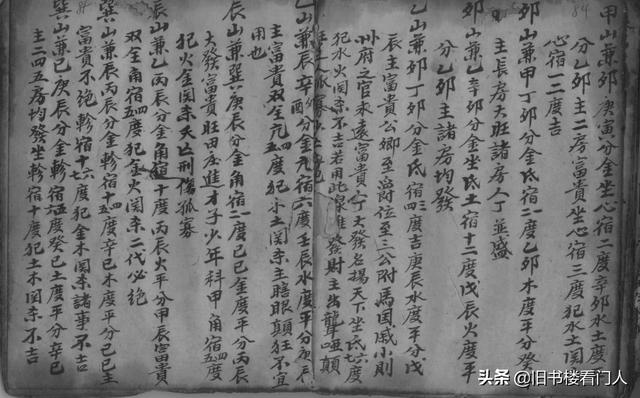 84
甲山兼卯庚寅分金坐心宿二度辛卯水土度
分乙卯主二房富貴坐心宿三度犯水土関
心宿一二度吉
卯山兼甲丁卯分金氐宿一度乙卯木度平分癸
主長房大旺諸房人丁並盛
卯山兼乙辛卯分金坐氐土宿十二度戊辰火度平
分乙卯主諸房均發
乙山兼卯丁卯分金氐宿四三度吉庚辰水度平分戊
辰主富貴公鄉至府位至三公附馬国戚小則
州府之官永遠富貴人丁大發名揚天下坐氐七六度
犯水火関杀不吉若用此唯發財主出聾啞顛
乙山兼辰辛酉分金亢宿六度壬辰水度平分庚辰
主富貴双全亢五四度犯水土関杀主瞎眼顛狂不宜
用也
辰山兼巽庚辰分金角宿一度己巳金度平分丙辰
大發富貴旺田庄進才子少年科甲角宿五四度
犯火金関杀夭亡刑傷孤寡
辰山兼乙丙辰分金角宿十度丙辰火平分甲辰富貴
双全角宿五四度犯金火関杀二代必絶
巽山兼辰丙辰分金軫宿十五四度辛巳木度平分己巳主
富貴不絶軫宿十七六度犯金木関杀諸事不吉
巽山兼巳庚辰分金軫宿六五度癸巳土度平分辛巳
主二四五房均發坐軫宿十度犯土木関杀不吉
头条 @旧书楼看门人